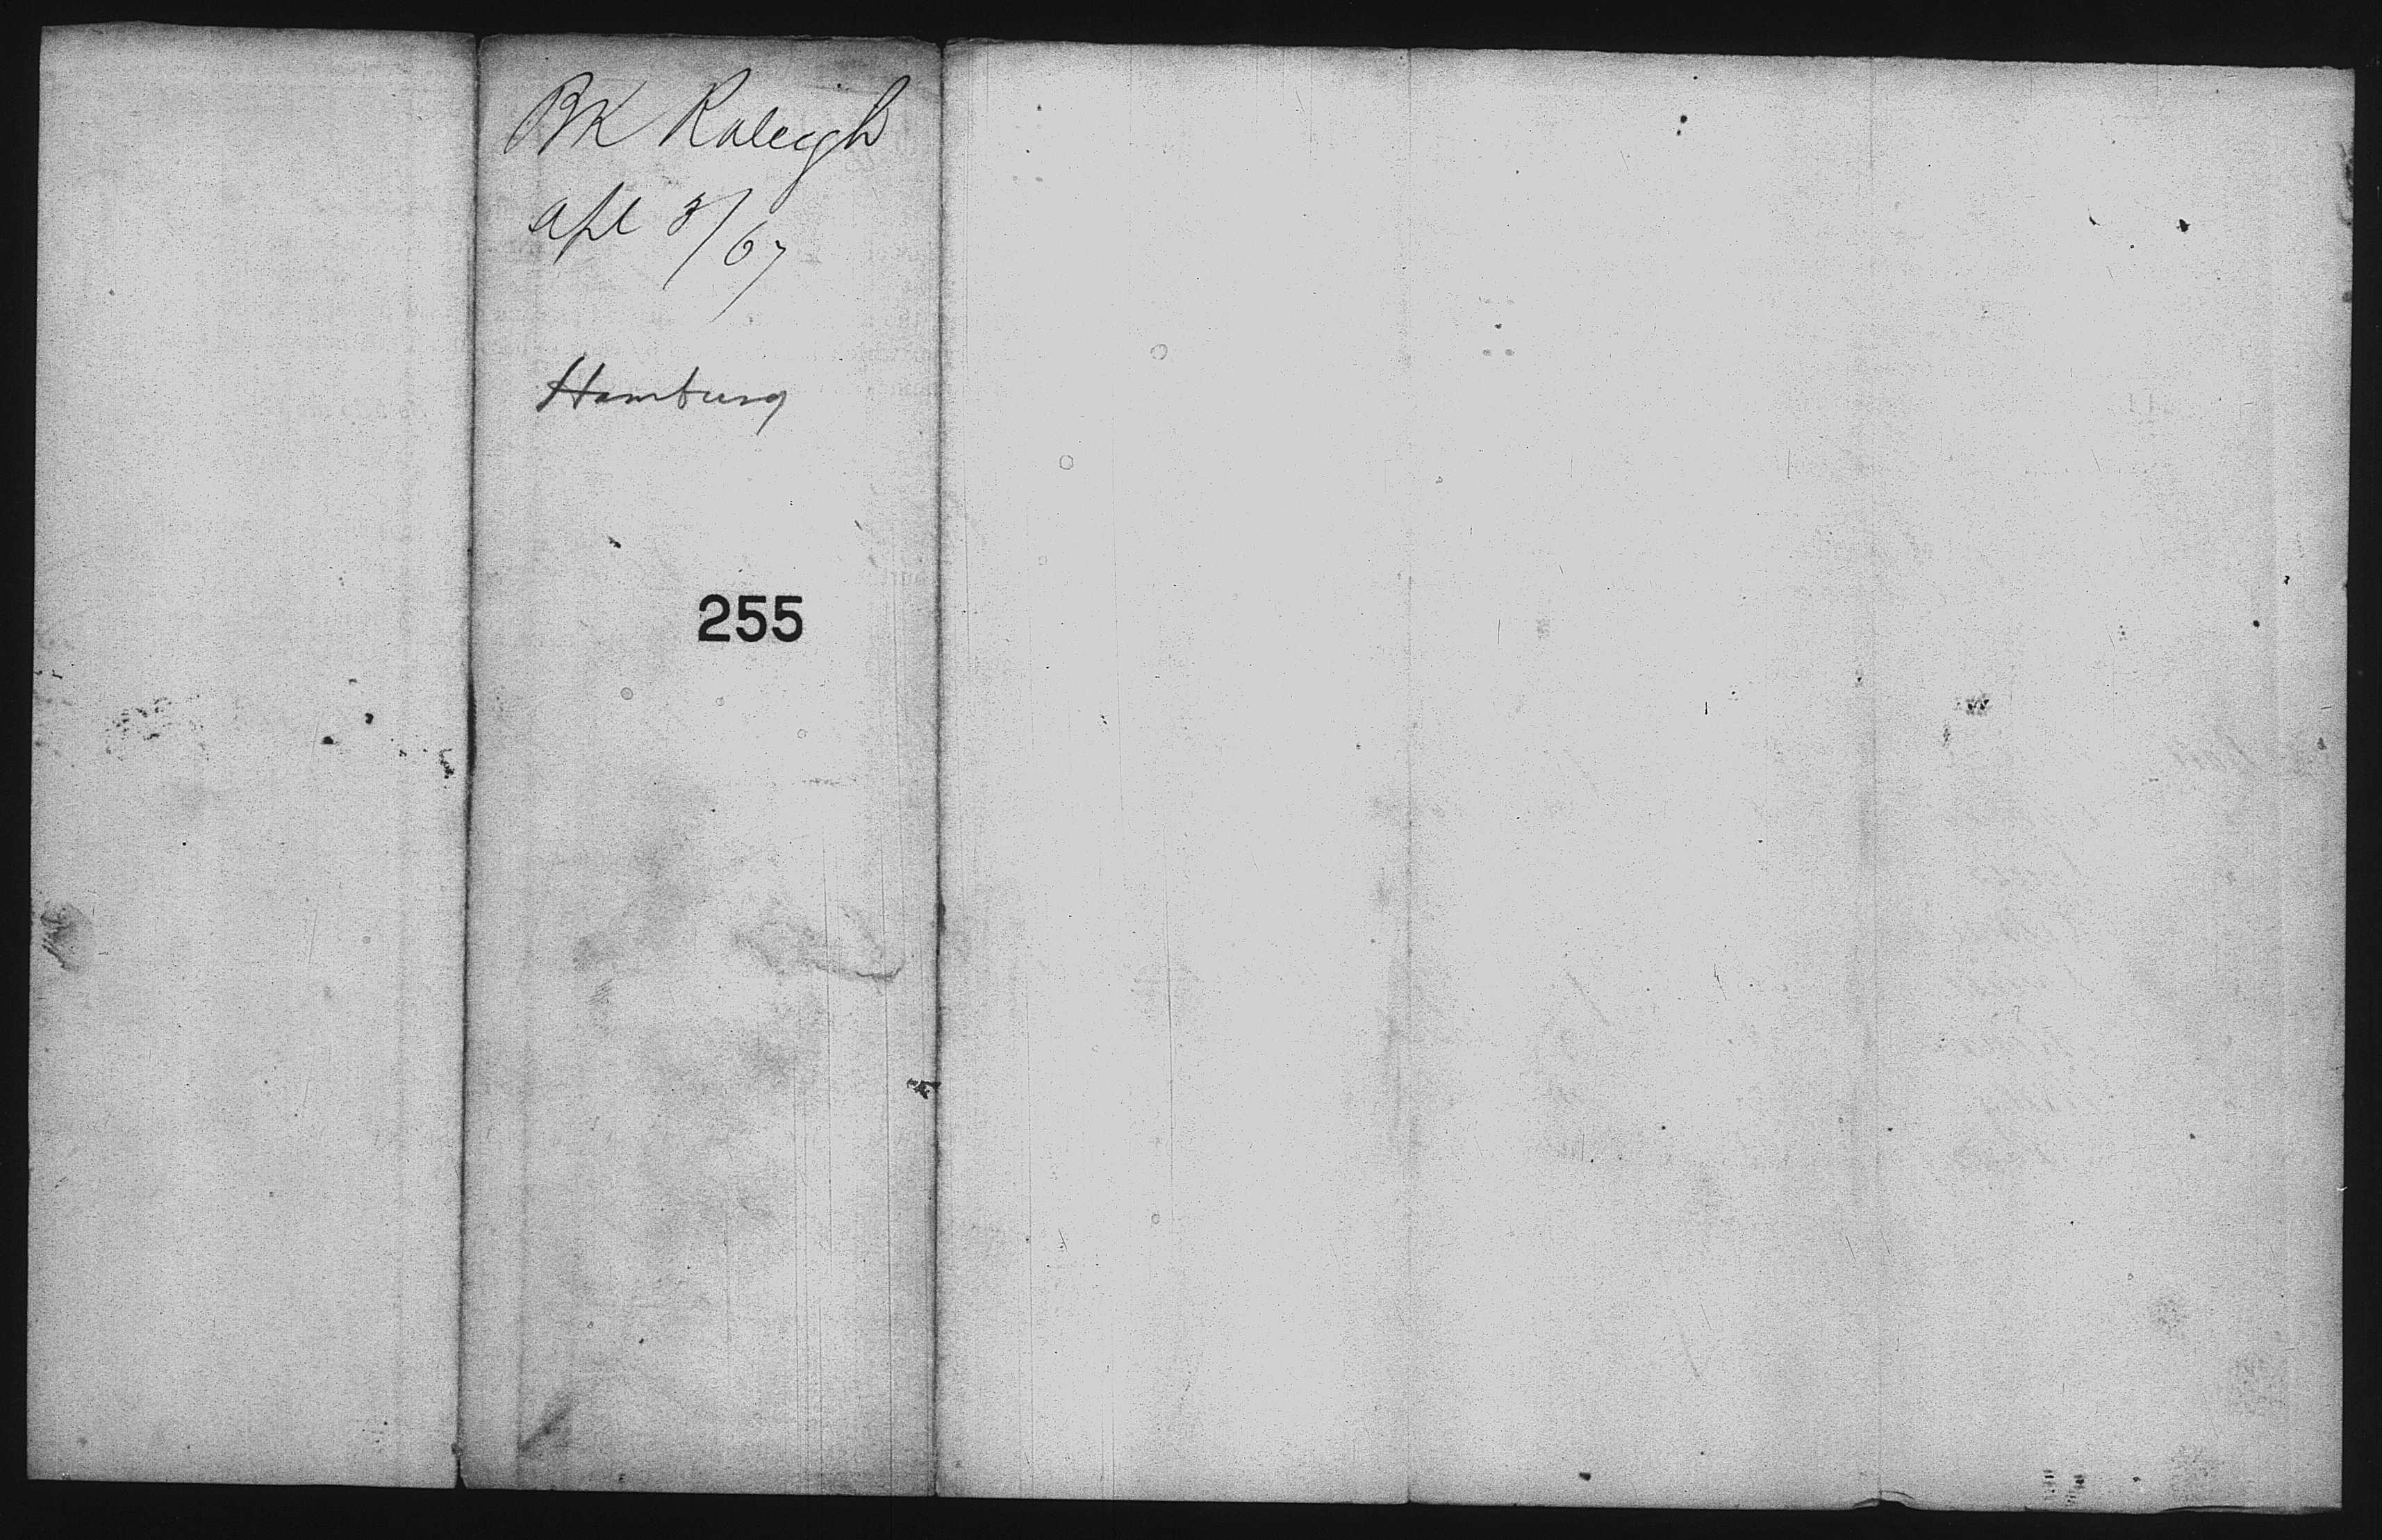 Bk Raleigh
Apl 3/67
Hamburg
255